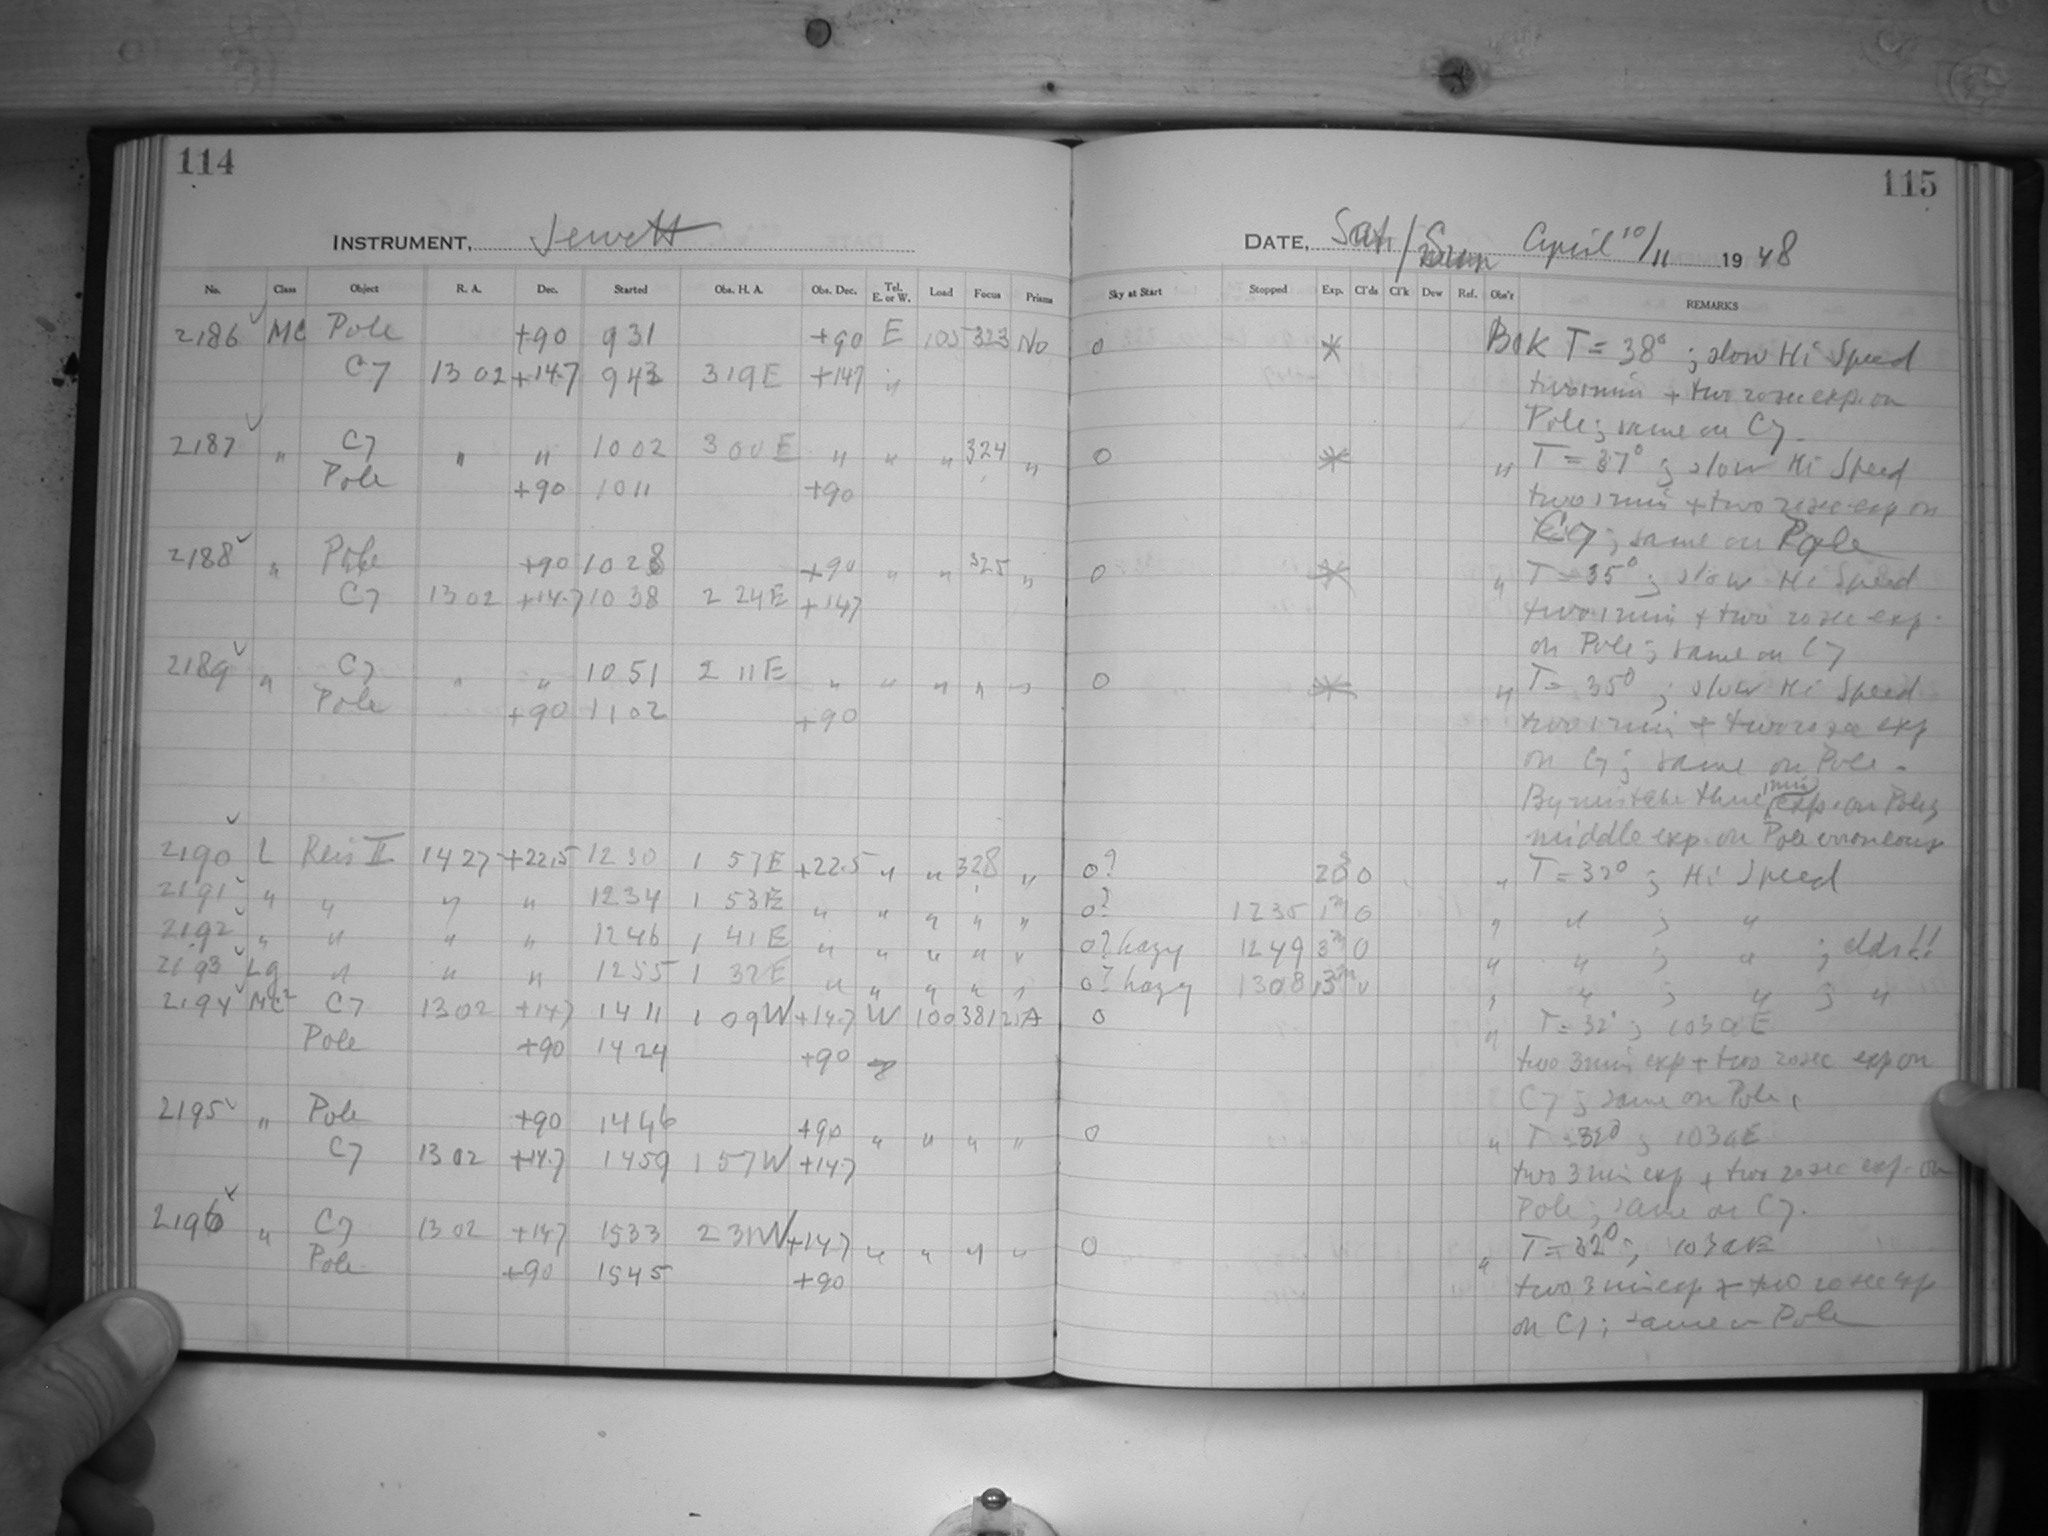 114
INSTRUMENT, Jewett
No. Class Object R. A. Dec. Started Obs. H. A. Obs. Dec. Tel. E. or W. Load Focus Prisms
2186 MC Pole +90 9 31 +90 E 105 323 No
C7 13 02 +14.7 9 43 3 19 E +147 "
2187 " C7 " " 10 02 3 00 E " " " 324 "
Pole +90 10 11 +90
2188 " Pole +90 10 28 +90 " " 325 "
C7 13 02 +14.7 10 38 2 24 E +147
2189 " C7 " " 10 51 2 11 E " " " " "
Pole +90 11 02 +90
2190 L II 14 27 +22.5 12 30 1 57 E +22.5 " " 328 "
2191 " " " " 12 34 1 53 E " " " " "
2192 " " " " 12 46 1 41 E " " " " "
2193 Lg " " " 12 55 1 32 E " " " " "
2194 MC C7 13 02 +14.7 14 11 1 09 W +14.7 W 100 381 A
Pole +90 14 24 +90
2195 " Pole +90 14 46 +90 " " " "
C7 13 02 +14.7 14 59 1 57 W +14.7
2196 " C7 13 02 +14.7 15 33 2 31 W +14.7 " " " "
Pole +90 15 45 +90
115
DATE, Sat/Sun April 10/11 1948
Sky at Start Stopped Exp. Cl'ds Cl'k Dew Ref. Obs'r REMARKS
0 * BoK T = 38° ; slow Hi Speed
two 1 min + two 20 sec exp. on
Pole ; same on C7.
0 * " T = 37° ; slow Hi Speed
two 1 min + two 20 sec exp on
C7 ; same on Pole
0 * " T = 35° ; slow Hi Speed
two 1 min + two 20 sec exp.
on Pole ; same on C7
0 * " T = 35° ; slow Hi Speed
two 1 min + two 20 sec exp
on C7 ; same on Pole.
By mistake three 1 min exp. on Pole;
middle exp. on Pole erroneous
0? 20s 0 " T = 32° ; Hi Speed
0? 1235 1m 0 " " ; "
0? hazy 1249 3m 0 " " ; " ; clds!!
0? hazy 1308 13m 0 " " ; " ; "
0 " T = 32° ; 103aE
two 3 min exp + two 20 sec exp on
C7 ; same on Pole.
0 " T = 32° ; 103aE
two 3 min exp + two 20 sec exp. on
Pole ; same on C7.
0 " T = 32° ; 103aE
two 3 min exp + two 20 sec exp
on C7 ; same on Pole